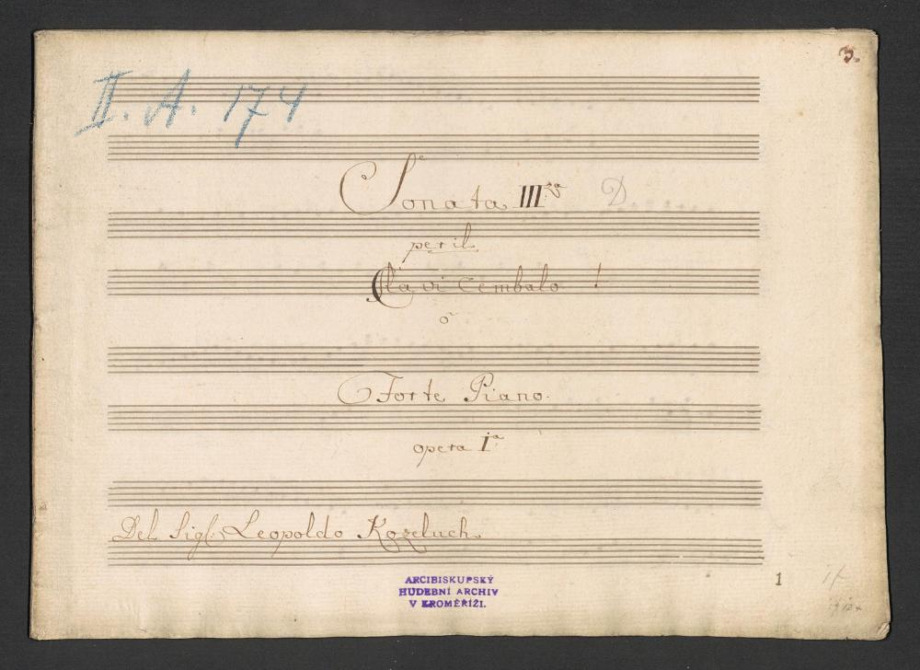 3.
II. A. 174
Sonata IIIza D
per il
Clavi Cembalo
o
Forte Piano.
opera Ia
Del Sigl: Leopoldo Kozeluch.
ARCIBISKUPSKÝ
HUDEBNÍ ARCHIV
V KROMĚŘÍŽI.
1